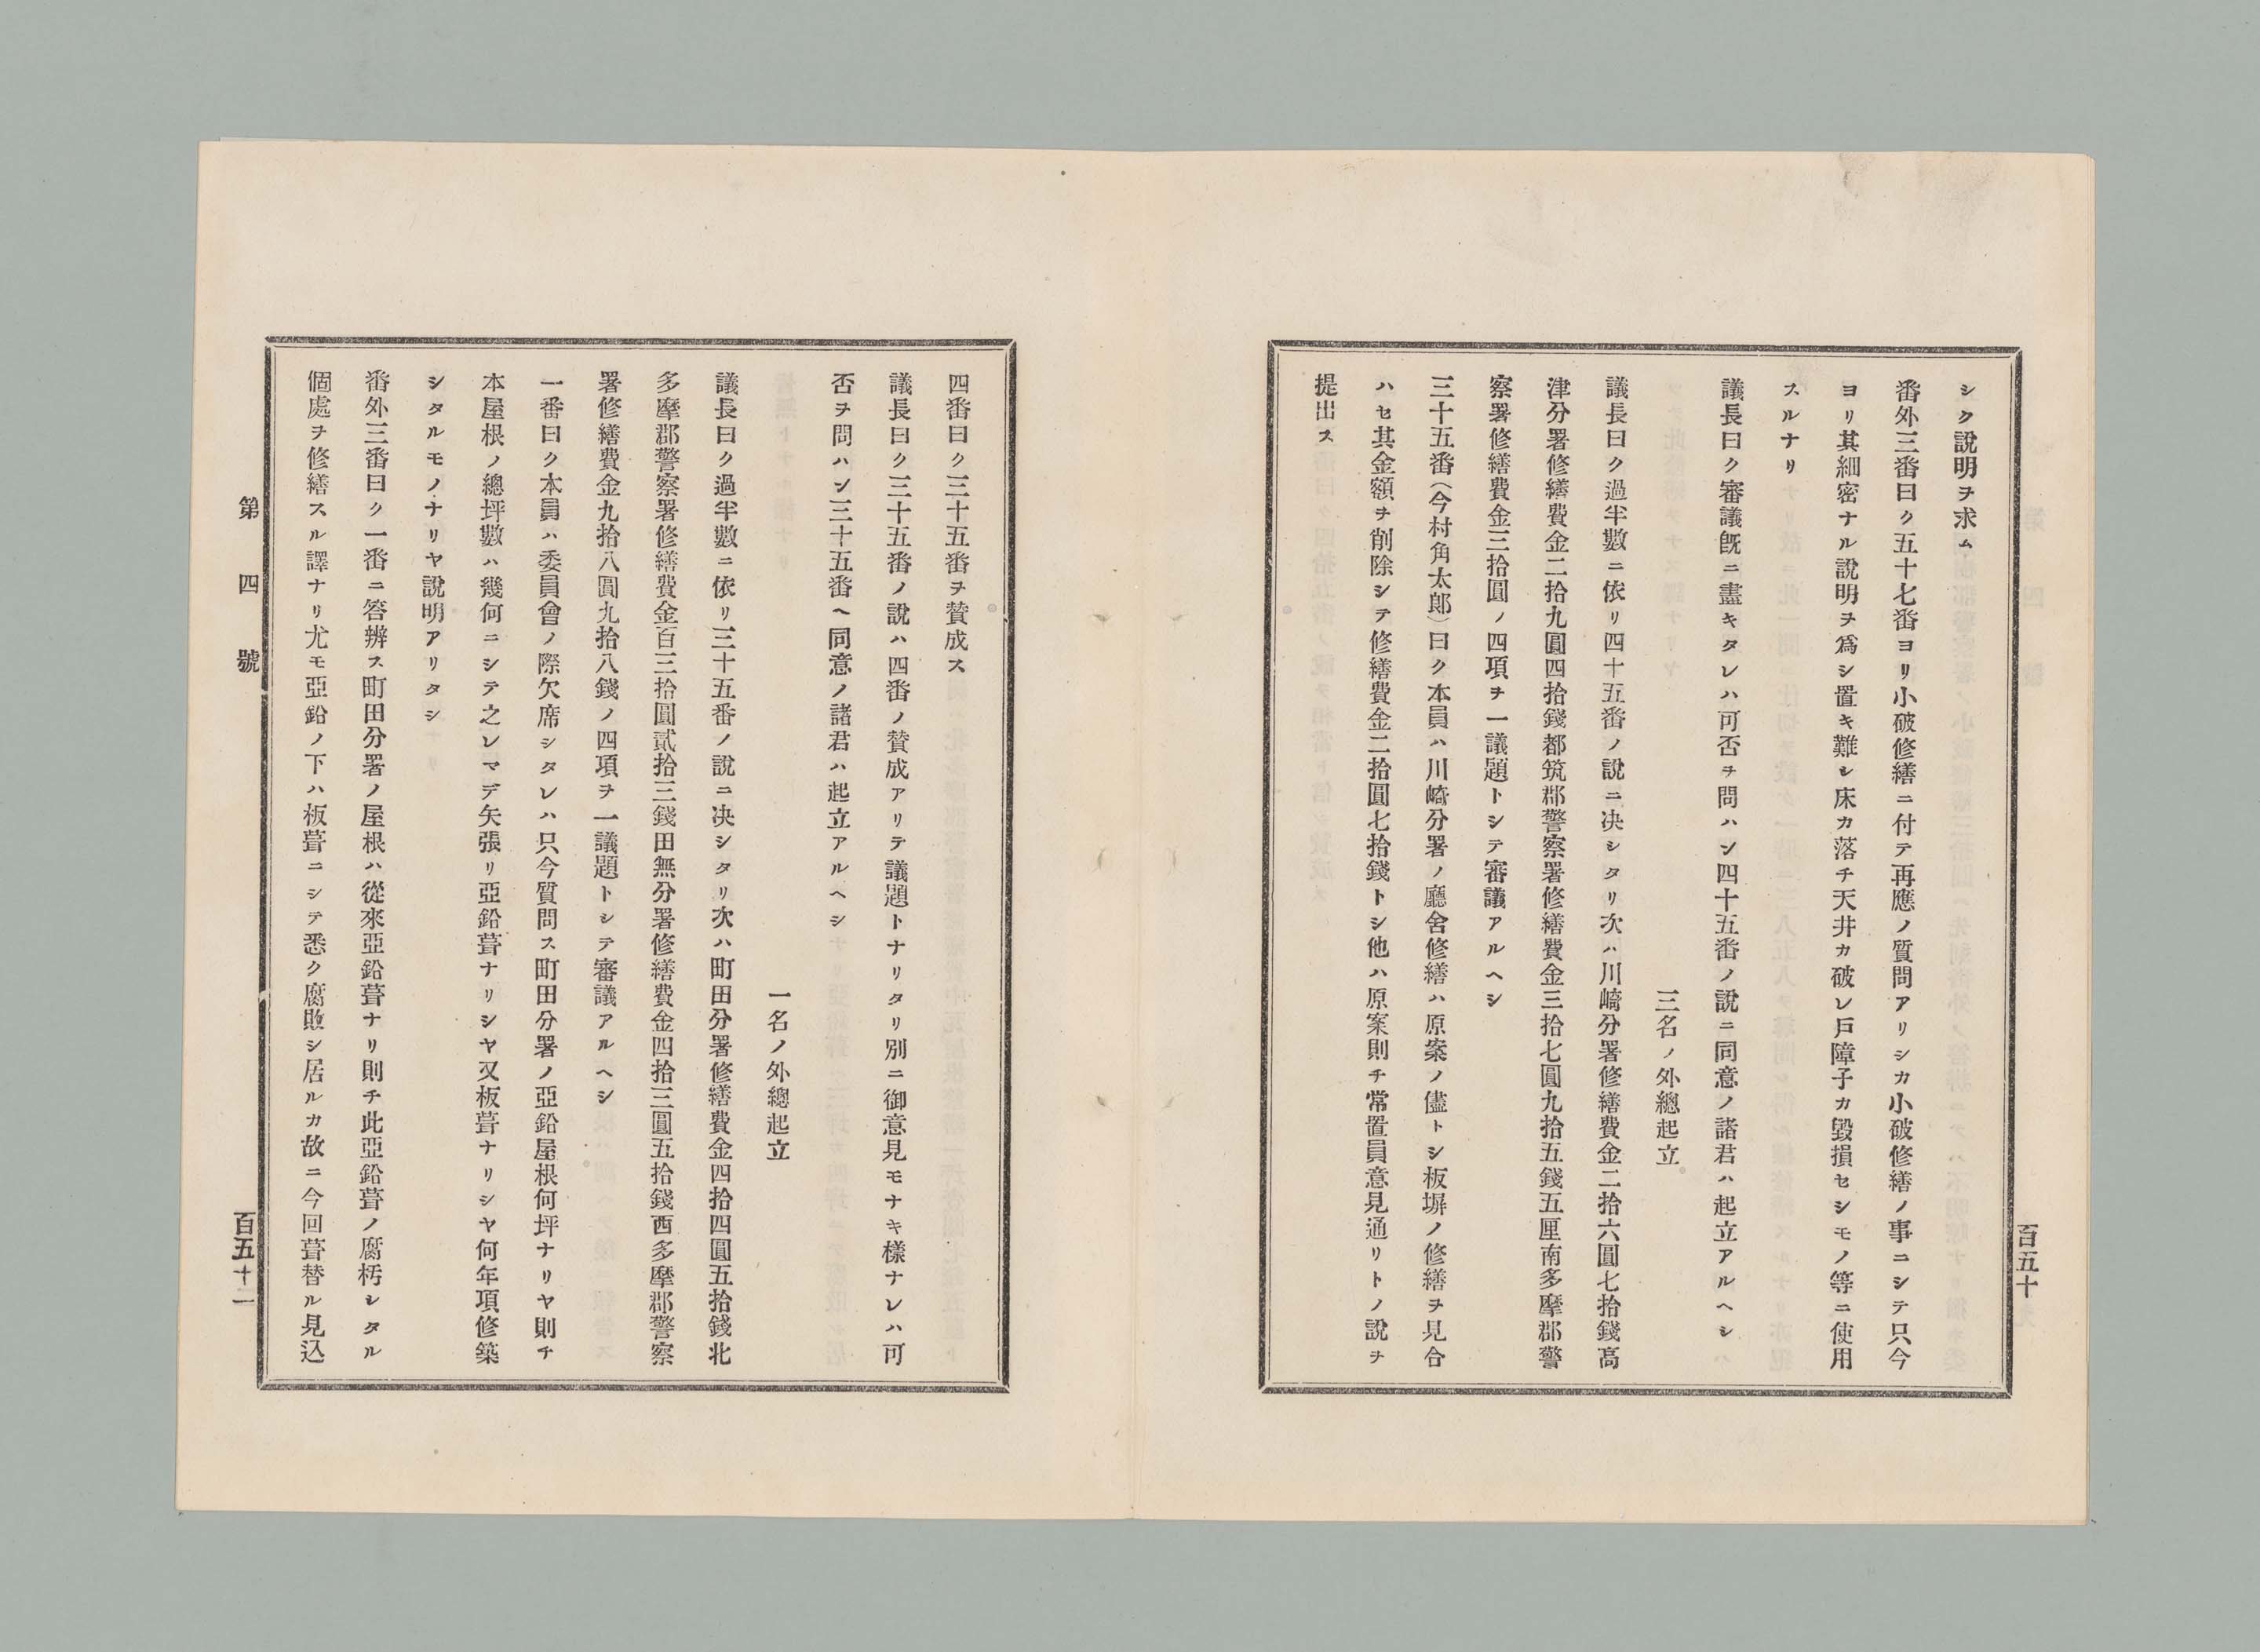 シク說明ヲ求ム
番外三番曰ク五十七番ヨリ小破修繕ニ付テ再應ノ質問アリシカ小破修繕ノ事ニシテ只今
ヨリ其細密ナル說明ヲ爲シ置キ難シ床カ落チ天井カ破レ戶障子カ毀損セシモノ等ニ使用
スルナリ
議長曰ク審議旣ニ盡キタレハ可否ヲ問ハン四十五番ノ說ニ同意ノ諸君ハ起立アルヘシ
三名ノ外總起立
議長曰ク過半數ニ依リ四十五番ノ說ニ决シタリ次ハ川崎分署修繕費金二拾六圓七拾錢高
津分署修繕費金二拾九圓四拾錢都筑郡警察署修繕費金三拾七圓九拾五錢五厘南多摩郡警
察署修繕費金三拾圓ノ四項ヲ一議題トシテ審議アルヘシ
三十五番（今村角太郎）曰ク本員ハ川崎分署ノ廳舍修繕ハ原案ノ儘トシ板塀ノ修繕ヲ見合
ハセ其金額ヲ削除シテ修繕費金二拾圓七拾錢トシ他ハ原案則チ常置員意見通リトノ說ヲ
提出ス
百五十
四番曰ク三十五番ヲ賛成ス
議長曰ク三十五番ノ說ハ四番ノ賛成アリテ議題トナリタリ別ニ御意見モナキ樣ナレハ可
否ヲ問ハン三十五番ヘ同意ノ諸君ハ起立アルヘシ
一名ノ外總起立
議長曰ク過半數ニ依リ三十五番ノ說ニ决シタリ次ハ町田分署修繕費金四拾四圓五拾錢北
多摩郡警察署修繕費金百三拾圓貳拾三錢田無分署修繕費金四拾三圓五拾錢西多摩郡警察
署修繕費金九拾八圓九拾八錢ノ四項ヲ一議題トシテ審議アルヘシ
一番曰ク本員ハ委員會ノ際欠席シタレハ只今質問ス町田分署ノ亞鉛屋根何坪ナリヤ則チ
本屋根ノ總坪數ハ幾何ニシテ之レマデ矢張リ亞鉛葺ナリシヤ又板葺ナリシヤ何年項修築
シタルモノナリヤ說明アリタシ
番外三番曰ク一番ニ答辨ス町田分署ノ屋根ハ從來亞鉛葺ナリ則チ此亞鉛葺ノ腐朽シタル
個處ヲ修繕スル譯ナリ尤モ亞鉛ノ下ハ板葺ニシテ悉ク腐敗シ居ルカ故ニ今回葺替ル見込
第四號
百五十一